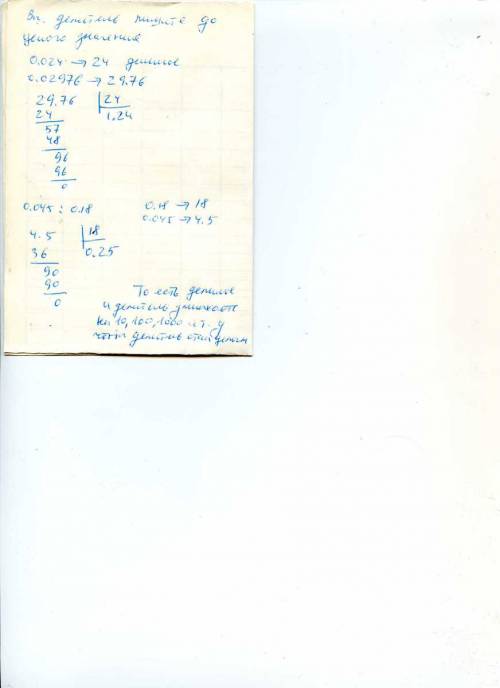 Вы делитель пишите до
целого значения
0.024 → 24 делимое
0.02976 → 29.76
29.76 24
24 1.24
57
48
96
96
0
0.045 : 0.18 0.18 → 18
0.045 → 4.5
4.5 18
36 0.25
90
90
0
То есть делимое
и делитель умножаете
на 10, 100, 1000 и т.
делитель стал целым